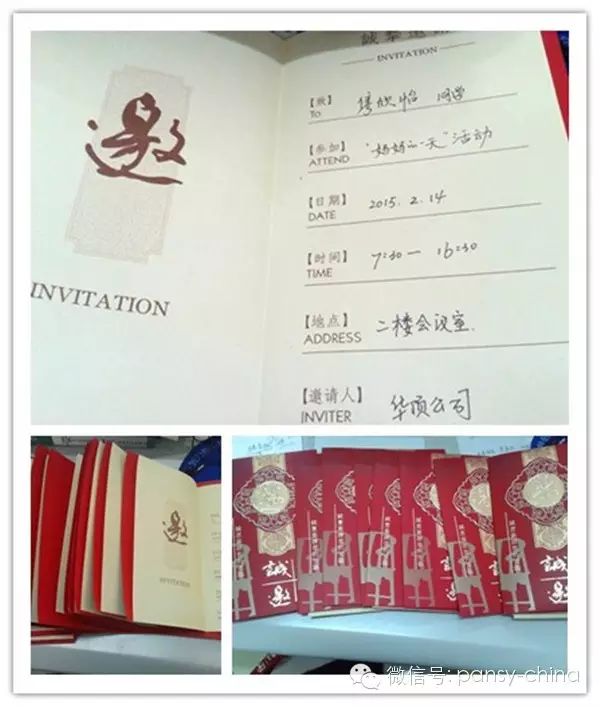 邀
INVITATION
誠摯邀請
INVITATION
【致】
TO
欣怡 同学
【参加】
ATTEND
"妈妈的一天"活动
【日期】
DATE
2015.2.14
【时间】
TIME
7:30—16:30
【地点】
ADDRESS
二楼会议室.
【邀请人】
INVITER
华顶公司
邀
INVITATION
誠
邀
誠
邀
微信号: pansy-china